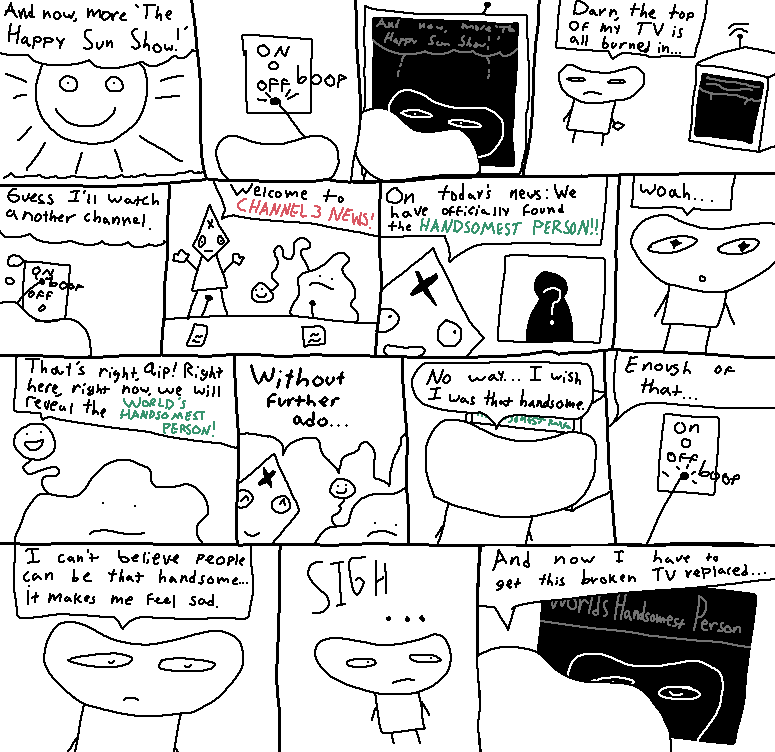 And now, more 'The
Happy Sun Show!'
ON
OFF
boop
And now, more 'The
Happy Sun Show!'
Darn, the top
of my TV is
all burned in...
Guess I'll watch
another channel.
ON
OFF
boop
Welcome to
CHANNEL 3 NEWS!
On today's news: We
have officially found
the HANDSOMEST PERSON!!
?
Woah...
That's right, Qip! Right
here, right now, we will
reveal the WORLD'S
HANDSOMEST
PERSON!
Without
further
ado...
No way... I wish
I was that handsome.
Enough of
that...
On
OFF
boop
I can't believe people
can be that handsome...
It makes me feel sad.
SIGH
...
And now I have to
get this broken TV replaced...
Worlds Handsomest Person